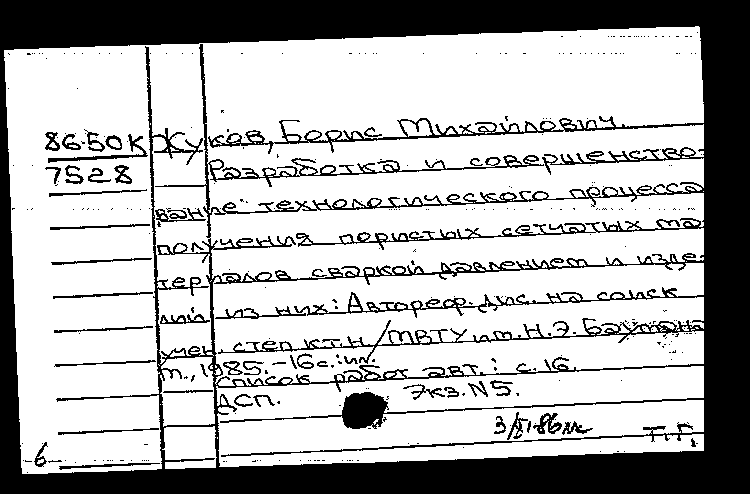 86-50К Жуков, Борис Михайлович.
7528 Разработка и совершенство-
вание технологического процесса
получения пористых сетчатых ма-
териалов сваркой давлением и изде-
лий из них: Автореф. дис. на соиск
учен. степ к.т.н./МВТУ им. Н.Э. Баумана
м., 1985.-16с.:ил.
список работ авт.: с. 16.
ДСП. Экз. N5.
Т.Г.
6